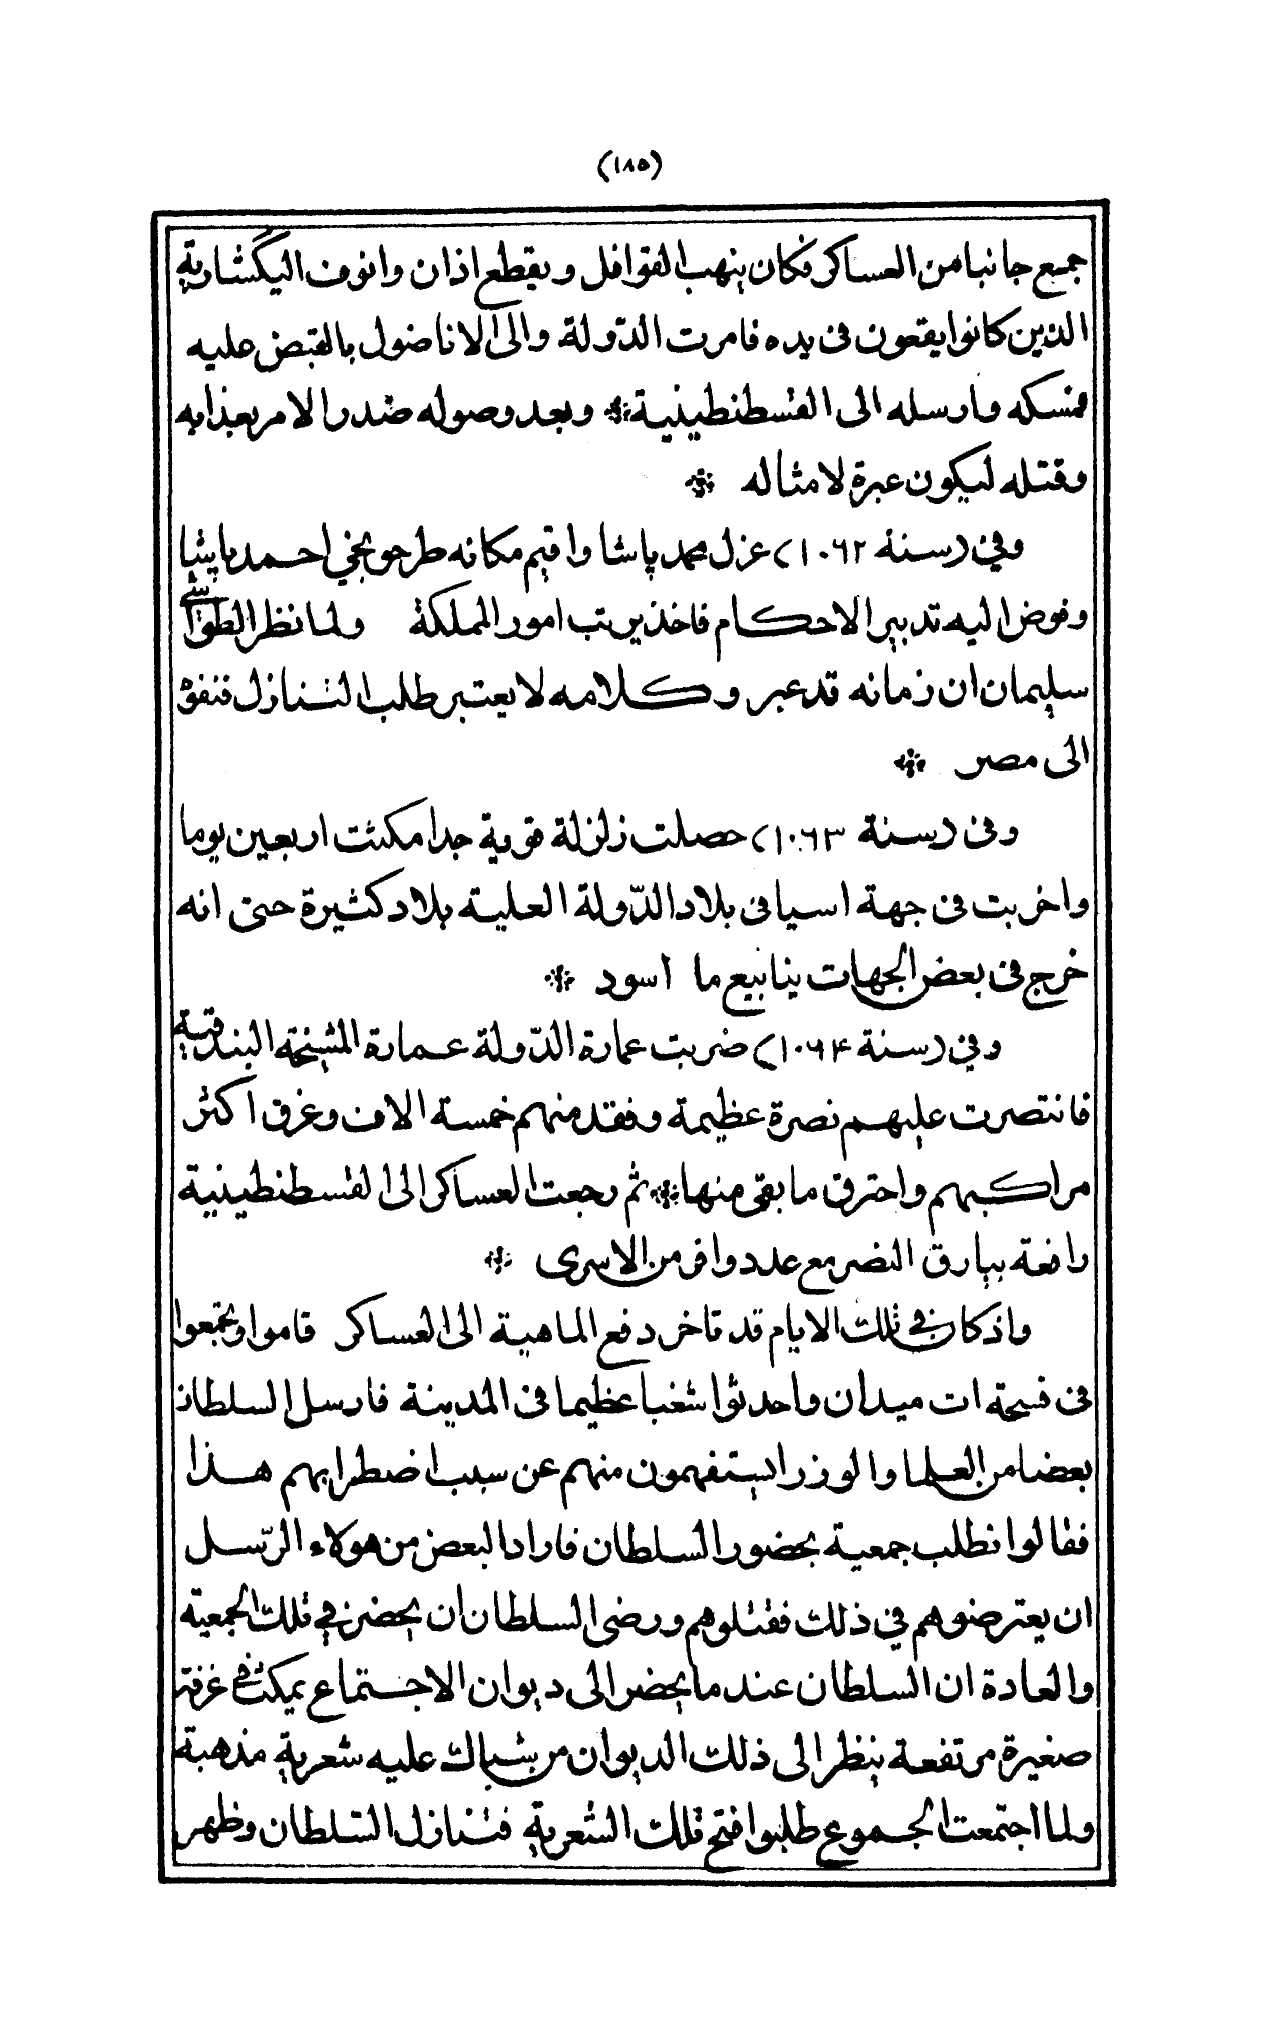 (١٨٥)
جمع جانبا من العساكر فكان ينهب القوافل ويقطع اذان وانوف اليكشارية
الذين كانوا يقعون فى يده فامرت الدّولة والى الاناضول بالقبض عليه
فمسكه وارسله الى القسطنطينية * وبعد وصوله صدر الامر بعذابه
وقتله ليكون عبرة لامثاله *
وفي (سنة ١٠٦٢) عزل محمد پاشا واقيم مكانه طرحونجي احمد پاشا
وفوض اليه تدبير الاحكام فاخذ يرتب امور المملكة ولما نظر الطواشي
سليمان ان زمانه قد عبر وكلامه لا يعتبر طلب التنازل فنفوه
الى مصر *
وفى (سنة ١٠٦٣) حصلت زلزلة قوية جدا مكثت اربعين يوما
واخربت فى جهة اسيا فى بلاد الدّولة العلية بلاد كثيرة حتى انه
خرج فى بعض الجهات ينابيع ما اسود *
وفي (سنة ١٠٦٤) ضربت عمارة الدّولة عمارة المشيخة البندقية
فانتصرت عليهم نصرة عظيمة وفقد منهم خمسة الاف وغرق اكثر
مراكبهم واحترق ما بقى منها * ثم رجعت العساكر الى القسطنطينية
رافعة بيارق النصر مع عدد وافر من الاسرى *
واذ كان في تلك الايام قد تاخر دفع الماهية الى العساكر قاموا وتجمعوا
فى فسحة ات ميدان واحدثوا شغبا عظيما فى المدينة فارسل السلطان
بعضا من العلما والوزرا يستفهمون منهم عن سبب اضطرابهم هذا
فقالوا نطلب جمعية بحضور السلطان فاراد البعض من هولاء الرّسل
ان يعترضوهم في ذلك فقتلوهم ورضى السلطان ان يحضر في تلك الجمعية
والعادة ان السلطان عندما يحضر الى ديوان الاجتماع يمكث في غرفة
صغيرة مرتفعة ينظر الى ذلك الديوان من شباك عليه شعرية مذهبة
ولما اجتمعت الجموع طلبوا فتح تلك الشعرية فتنازل السّلطان وظهر